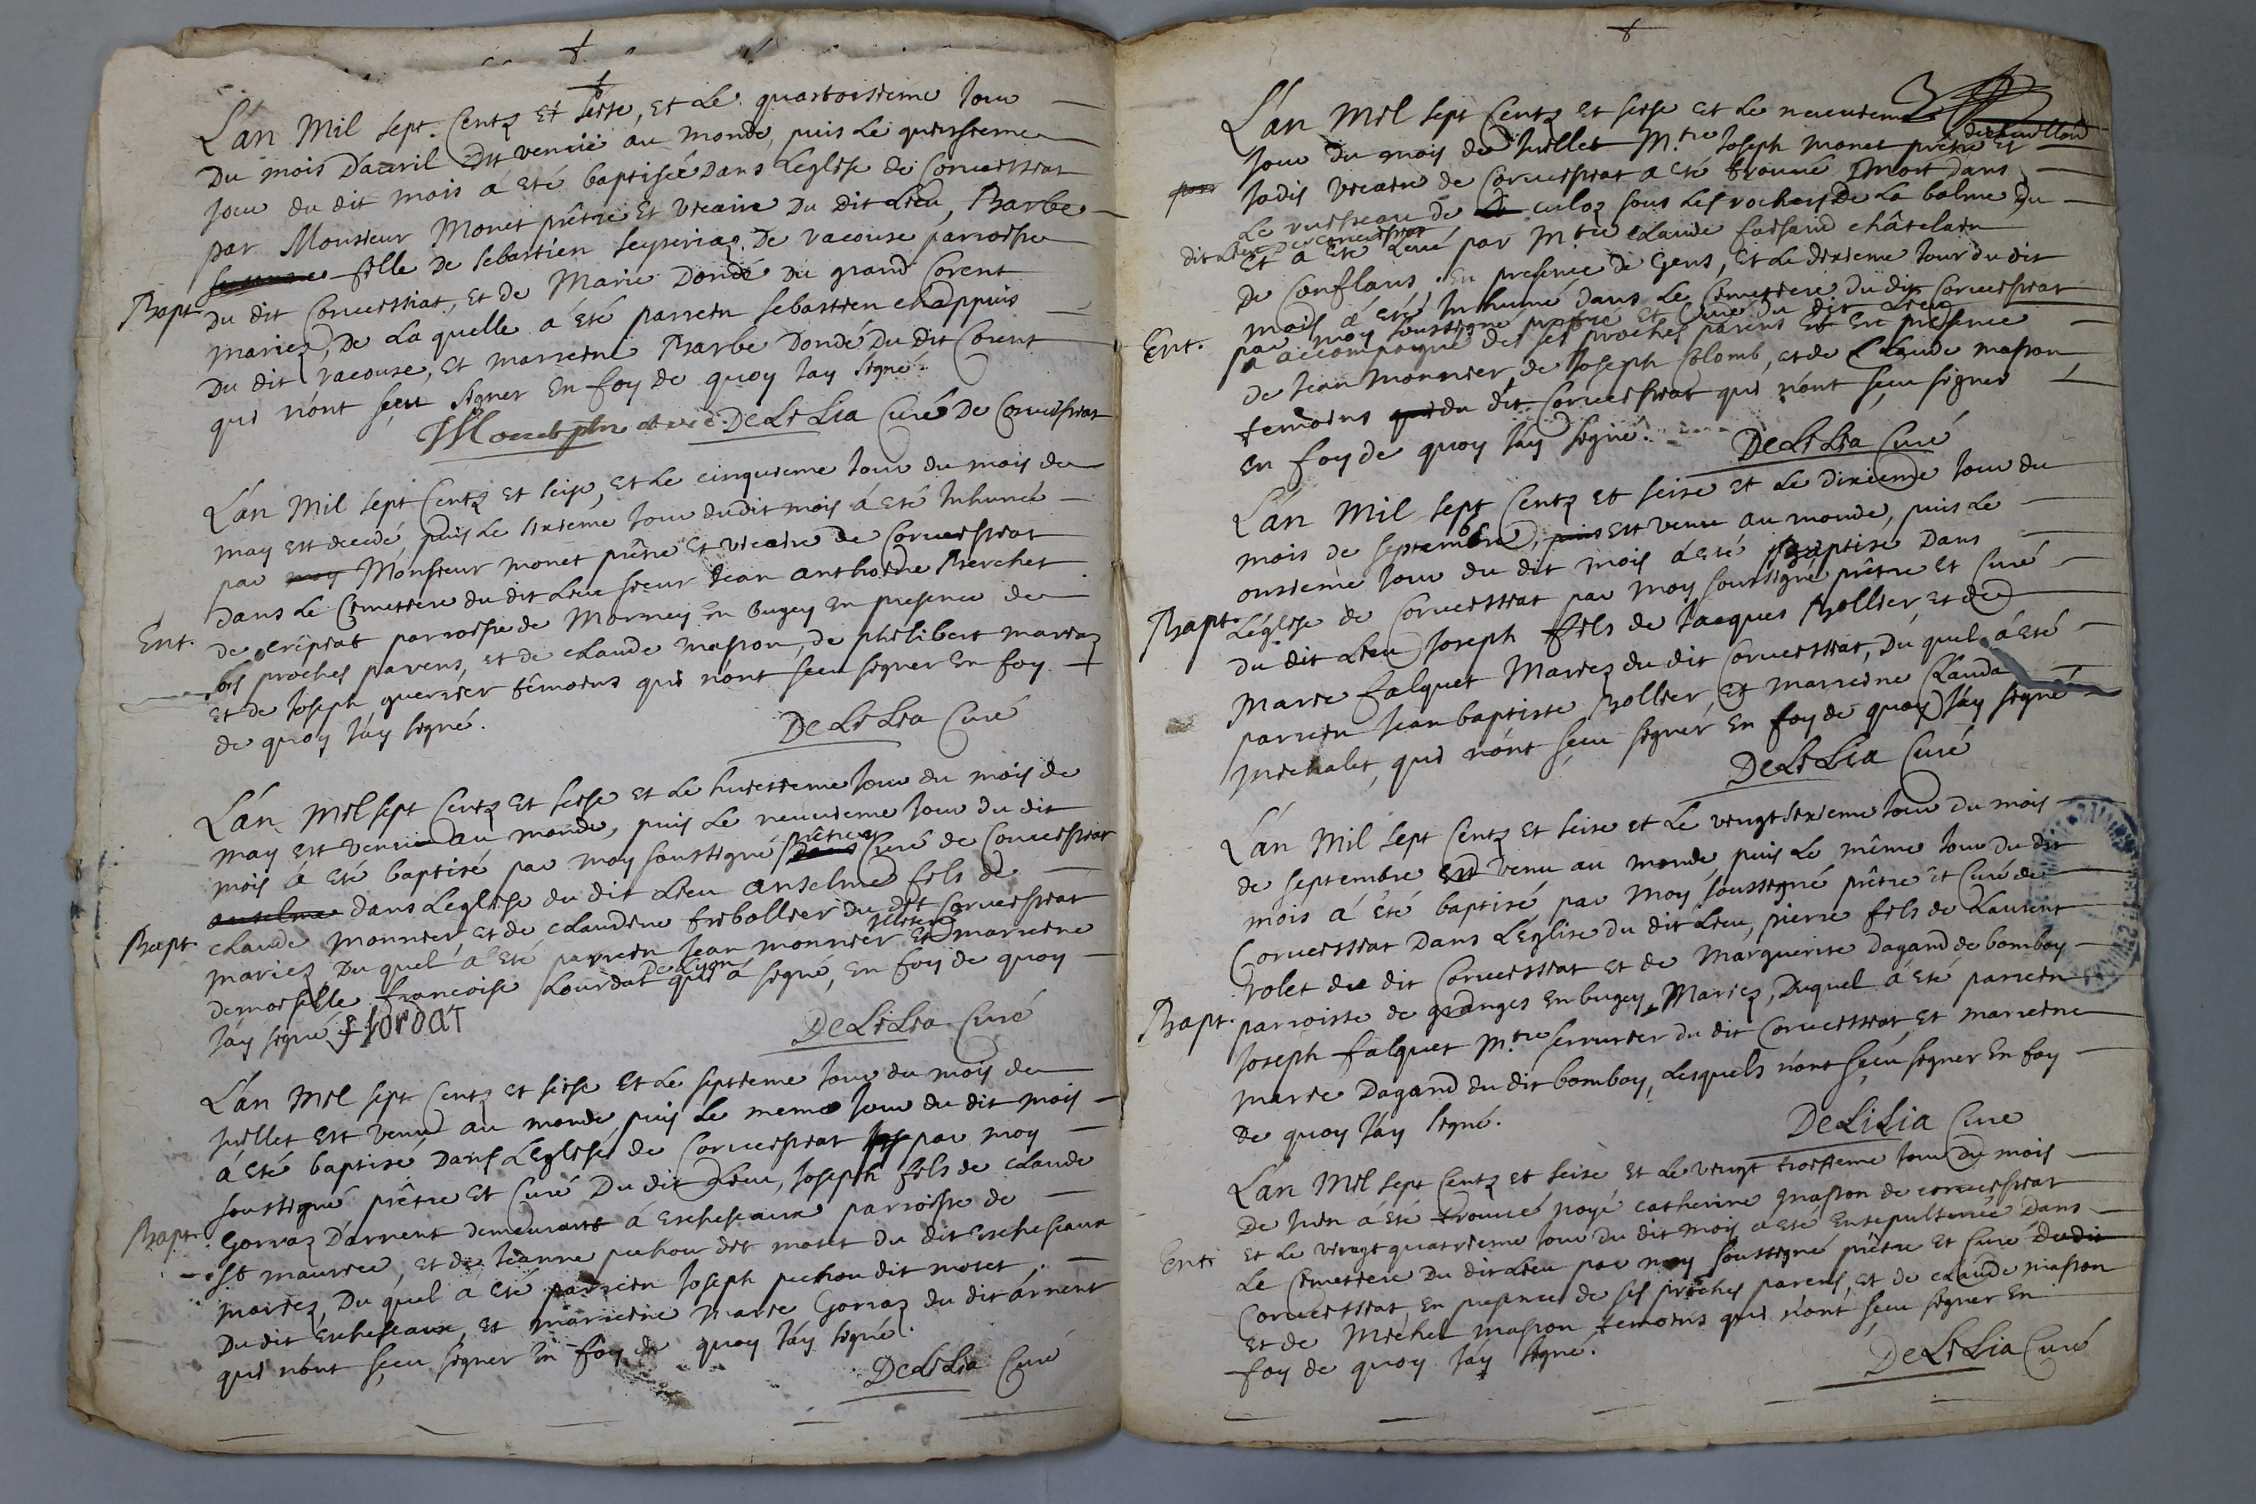 L'an Mil sept Centz Et seise, Et Le quatorsieme Jour
Du mois Dauril Est venüe au monde, puis Le quinsieme
Jour du dit mois a Eté baptiséé Dans Leglise de Corueissiat
par Monsieur Monet prêtre Et vicaire Du dit Lieu, Barbe
fille De sebastien seyseriaz De racouse parroisse
Bapt. Du dit Corueissiat, Et de Marie Dondé Du grand Corent
mariez, De La quelle a Eté parrein sebastien chappuis
Du dit racouse, Et marreine Barbe Dondé Du dit Corent
qui n'ont sçeu signer En foy de quoy Jay signé.
DeLiLia Curé De Corueissiat
L'an Mil sept Centz Et seise, Et Le cinquieme Jour du mois de
may Est decedé, puis Le sixieme Jour dudit mois a Eté Inhumé
par moy Monsieur monet prêtre Et vicaire de Corueissiat
Dans Le Cimetiere du dit Lieu sieur Jean anthoine Berchet
Ent. de crépiat parroisse de Morney En bugey En presence de
ses proches parens, et de claude masson, de philibert mariaz
Et de Joseph guerrier têmoins qui n'ont sçeu signer En foy
de quoy Jáy signé.
DeLiLia Curé
L'an Mil sept Centz Et seise et Le huictieme Jour du mois de
may Est venu au monde, puis Le neuuieme Jour du dit
mois a Eté baptisé par moy soussigné prêtre et Curé de Corueissiat
anselme dans Leglise du dit Lieu anselme fils de
Bapt. claude Monnier, et de claudine frebollier du dit Corueissiat
mariez, Du quel a Eté parrein Jean monnier Et marreine
demoiselle francoise Lourdat De Lyon qui a signé, En foy de quoy
Jáy signé f Jordat
DeLiLia Curé
L'an Mil sept Centz Et seise Et Le septieme Jour du mois de
Juillet Est venu au monde puis Le meme Jour du dit mois
a Eté baptisé Dans LEglise de Corueissiat par moy
soussigné prêtre Et Curé Du dit Lieu, Joseph fils de claude
Bapt. Gorraz D'arnent demeurant á Escheseaux parroisse de
St maurice, et de Jeanne puchou dit motet du dit Escheseaux
mariez, Du quel a Eté parrein Joseph puchou dit motet,
Du dit Escheseaux, Et marreine Marie Gorraz du dit árnent
qui n'ont sçeu signer En foy de quoy Jáy signé.
DeLiLia Curé
3
L'án Mil sept Centz Et seise et Le neuuieme
Jour Du mois de Juillet M.tre Joseph monet prêtre Et
Jadis vicaire de Corueissiat a Eté trouvé Mort Dans
Le ruisseau de culoz sous Les rochers De La balme Du
dit Lieu De Corueissiat
Et a Eté Leué par M.tre claude faisand châtelain
De Conflans, En presence de Gens, Et Le dixieme Jour du dit
mois a Eté Inhumé Dans Le Cimetiere du dit Corueissiat
Ent. par moy soussigné prêtre Et Curé du dit Lieu
accompagné de ses proches parens Et En presence
de Jean Monnier, de Joseph Colomb, et de Claude masson
temoins du dit Corueissiat qui n'ont sçeu signer
En foy de quoy Jáy signé.
DeLiLia Curé
L'án Mil sept Centz Et seise et Le Dixieme Jour du
mois de septembre, puis Est venu au monde, puis Le
onsieme Jour du dit mois a Eté Baptisé Dans
Bapt. L'église de Corueissiat par moy soussigné prêtre Et Curé
du dit Lieu Joseph fils de Jacques Bollier et de
Marie falquet Mariez du dit Corueissiat, Du quel a Eté
parrein Jean baptiste Bollier, Et marreine Clauda
michalet, qui n'ont sçeu signer En foy de quoy Jáy signé
DeLiLia Curé
L'án Mil sept Centz Et seise et Le vingt sixieme Jour Du mois
de septembre Est venu au monde, puis Le même Jour Du dit
mois a Eté baptisé par moy soussigné prêtre Et Curé de
Corueissiat Dans L'Eglise Du dit Lieu, pierre fils de Laurent
rolet du dit Corueissiat Et de Marguerite Dagand de bomboy
Bapt. parroisse de granges En bugey, Mariez, Duquel a Eté parrein
Joseph falquet M.tre serrurier du dit Corueissiat, Et marreine
marie Dagand du dit bomboy, Lesquels n'ont sçeu signer En foy
De quoy Jáy signé.
DeLiLia Curé
L'án Mil sept Centz Et seise, Et Le vingt troisieme Jour Du mois
De Juin a Eté trouué noyé catherine masson de corueissiat
Ent. Et Le vingt quatrieme Jour Du dit mois a Eté Ensepulturée Dans
Le Cimetiere Du dit Lieu par moy soussigné prêtre Et Curé Dudit
Corueissiat, En presence de ses proches parens, Et de claude masson
Et de Michel masson temoins qui n'ont sçeu signer En
foy de quoy Jáy signé.
DeLiLia Curé